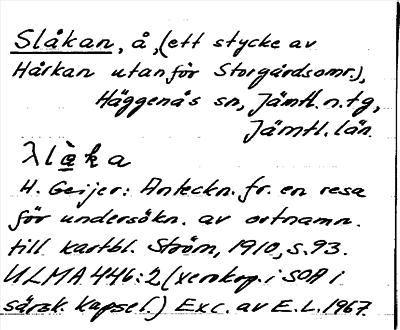 Slåkan, å, (ett stycke av
Hårkan utanför Storgårdsomr.),
Häggenås sn, Jämtl. n. tg,
Jämtl. län.
λlàka
H. Geijer: Anteckn. fr. en resa
för undersökn. av ortnamn.
till kartbl. Ström, 1910, s. 93.
ULMA 446:2 (xerokop. i SOA i
särsk. kapsel.) Exc. av E. L. 1967.